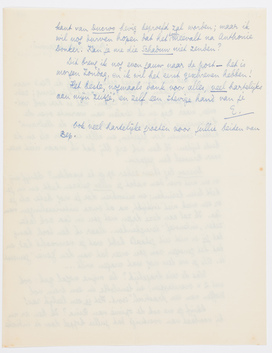 kant van hevig beroerd zal worden; maar ik
wil nog durven hopen dat het na Anthonie
Donker. Kan je me die wel zenden?
Dit breng ik nog even gauw naar de post – het is
morgen Zondag, en ik wil het eind geschreven hebben!
Het beste, nogmaals dank voor alles, veel hartelijks
aan mijn zusje, en zelf een stevige hand van je
E.
Ook veel hartelijke groeten voor jullie beiden van
Bep.